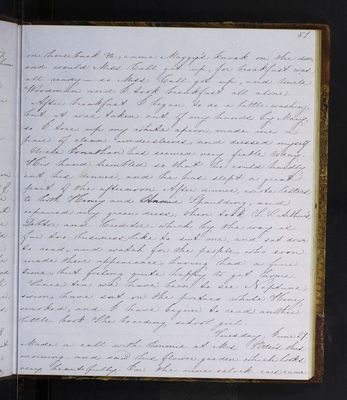 51
on horseback &c, came Maggie's knock on the door,
and would Miss Call get up, for breakfast was
all ready — so Miss Call got up, and Uncle
Woodman and I took breakfast all alone.
After breakfast I began to do a little washing,
but it was taken out of my hands by Mary,
so I tore up my white apron, made me a
pair of clean undersleeves, and dressed myself.
Uncle Jonathan has seemed very feeble today.
His hand trembled so that he could hardly
eat his dinner, and he has slept a great
part of the afternoon. After dinner wrote letters
to both Henry and Annie Spaulding, and
repaired my green dress, then took T. S. Arthur's
Debtor and Creditor, which by the way is
far too businesslike to suit me, and sat down
to read, and watch for the people, who soon
made their appearance, having had a fine
time, but feeling quite happy to get home.
Since tea we have been to see Neptune
swim, have sat on the portico while Henry
smoked, and I have begun to read another
little book "The boarding school girl."
Tuesday, June 27.
Made a call with Emmie at Mrs this
morning and saw his flower garden which looks
very beautifully. On the nine o'clock cars came